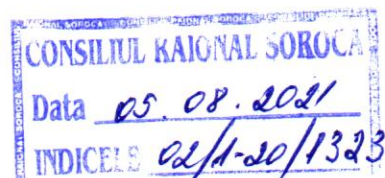 CONSILIUL RAIONAL SOROCA
Data 05.08.2021
INDICELE 02/1-20/1323